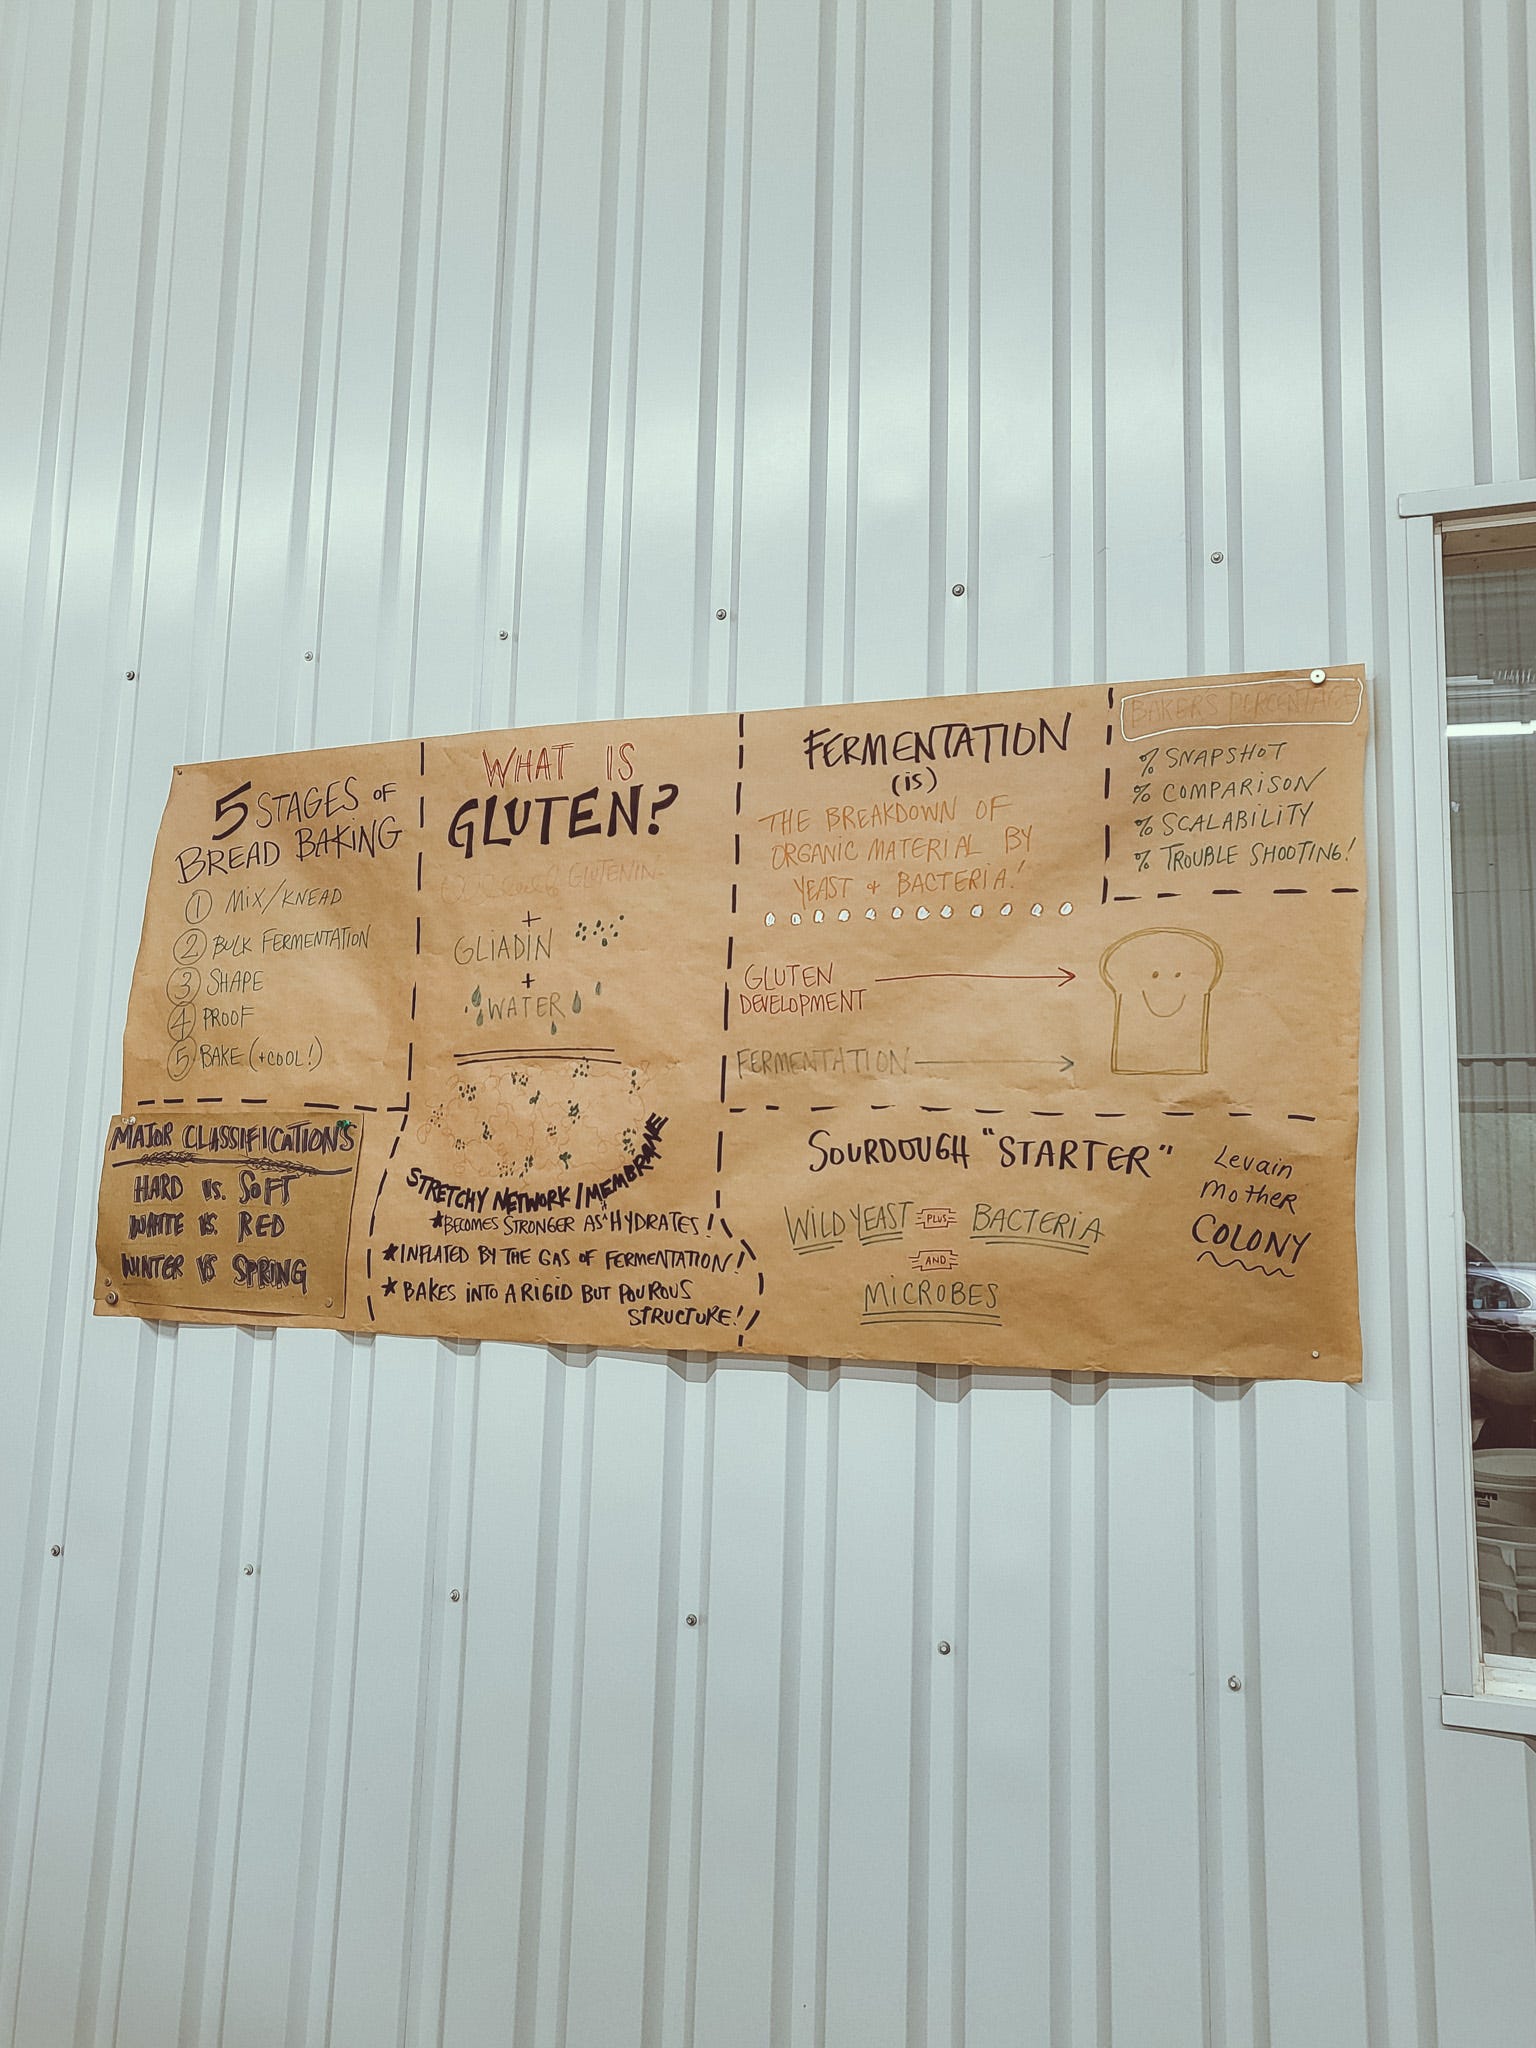 5 STAGES OF
BREAD BAKING
1 MIX/KNEAD
2 BULK FERMENTATION
3 SHAPE
4 PROOF
5 BAKE (+COOL!)
MAJOR CLASSIFICATIONS
HARD VS. SOFT
WHITE VS. RED
WINTER VS SPRING
WHAT IS
GLUTEN?
GLUTENIN
+
GLIADIN
+
WATER
STRETCHY NETWORK/MEMBRANE
*BECOMES STRONGER AS HYDRATES!
*INFLATED BY THE GAS OF FERMENTATION!
*BAKES INTO A RIGID BUT POUROUS
STRUCTURE!
FERMENTATION
(is)
THE BREAKDOWN OF
ORGANIC MATERIAL BY
YEAST + BACTERIA!
GLUTEN
DEVELOPMENT
FERMENTATION
BAKER'S PERCENTAGE
% SNAPSHOT
% COMPARISON
% SCALABILITY
% TROUBLE SHOOTING!
SOURDOUGH "STARTER"
WILD YEAST PLUS BACTERIA
AND
MICROBES
Levain
Mother
COLONY